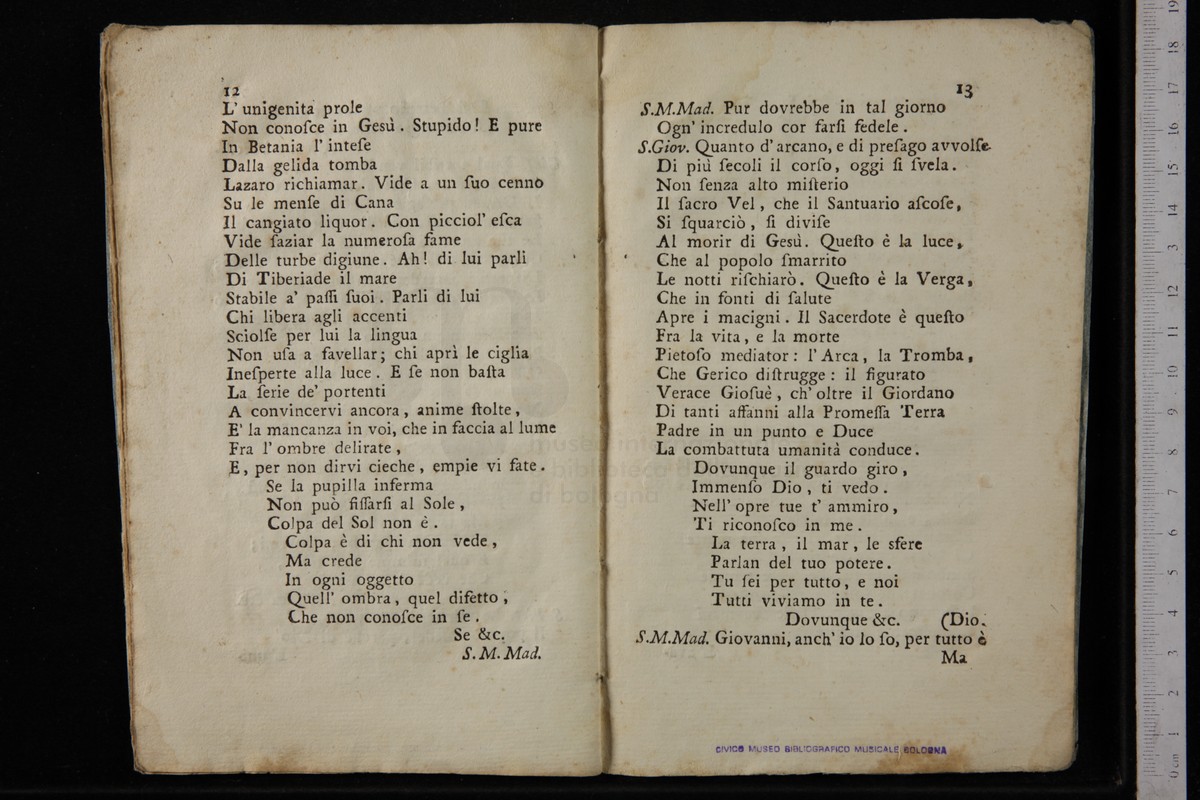 12
L' unigenita prole
Non conoſce in Gesù. Stupido! E pure
In Betania l' inteſe
Dalla gelida tomba
Lazaro richiamar. Vide a un ſuo cenno
Su le menſe di Cana
Il cangiato liquor. Con picciol' eſca
Vide ſaziar la numeroſa fame
Delle turbe digiune. Ah! di lui parli
Di Tiberiade il mare
Stabile a' paſſi ſuoi. Parli di lui
Chi libera agli accenti
Sciolſe per lui la lingua
Non uſa a favellar; chi aprì le ciglia
Ineſperte alla luce. E ſe non baſta
La ſerie de' portenti
A convincervi ancora, anime ſtolte,
E' la mancanza in voi, che in faccia al lume
Fra l' ombre delirate,
E, per non dirvi cieche, empie vi fate.
Se la pupilla inferma
Non può fiſſarſi al Sole,
Colpa del Sol non è.
Colpa è di chi non vede,
Ma crede
In ogni oggetto
Quell' ombra, quel difetto,
Che non conoſce in ſe.
Se &c.
S. M. Mad.
13
S.M.Mad. Pur dovrebbe in tal giorno
Ogn' incredulo cor farſi fedele.
S.Giov. Quanto d' arcano, e di preſago avvolſe
Di più ſecoli il corſo, oggi ſi ſvela.
Non ſenza alto miſterio
Il ſacro Vel, che il Santuario aſcoſe,
Si ſquarciò, ſi diviſe
Al morir di Gesù. Queſto è la luce,
Che al popolo ſmarrito
Le notti riſchiarò. Queſto è la Verga,
Che in fonti di ſalute
Apre i macigni. Il Sacerdote è queſto
Fra la vita, e la morte
Pietoſo mediator: l' Arca, la Tromba,
Che Gerico diſtrugge: il figurato
Verace Gioſuè, ch' oltre il Giordano
Di tanti affanni alla Promeſſa Terra
Padre in un punto e Duce
La combattuta umanità conduce.
Dovunque il guardo giro,
Immenſo Dio, ti vedo.
Nell' opre tue t' ammiro,
Ti riconoſco in me.
La terra, il mar, le sfere
Parlan del tuo potere.
Tu ſei per tutto, e noi
Tutti viviamo in te.
Dovunque &c. (Dio.
S.M.Mad. Giovanni, anch' io lo ſo, per tutto è
Ma
CIVICO MUSEO BIBLIOGRAFICO MUSICALE BOLOGNA